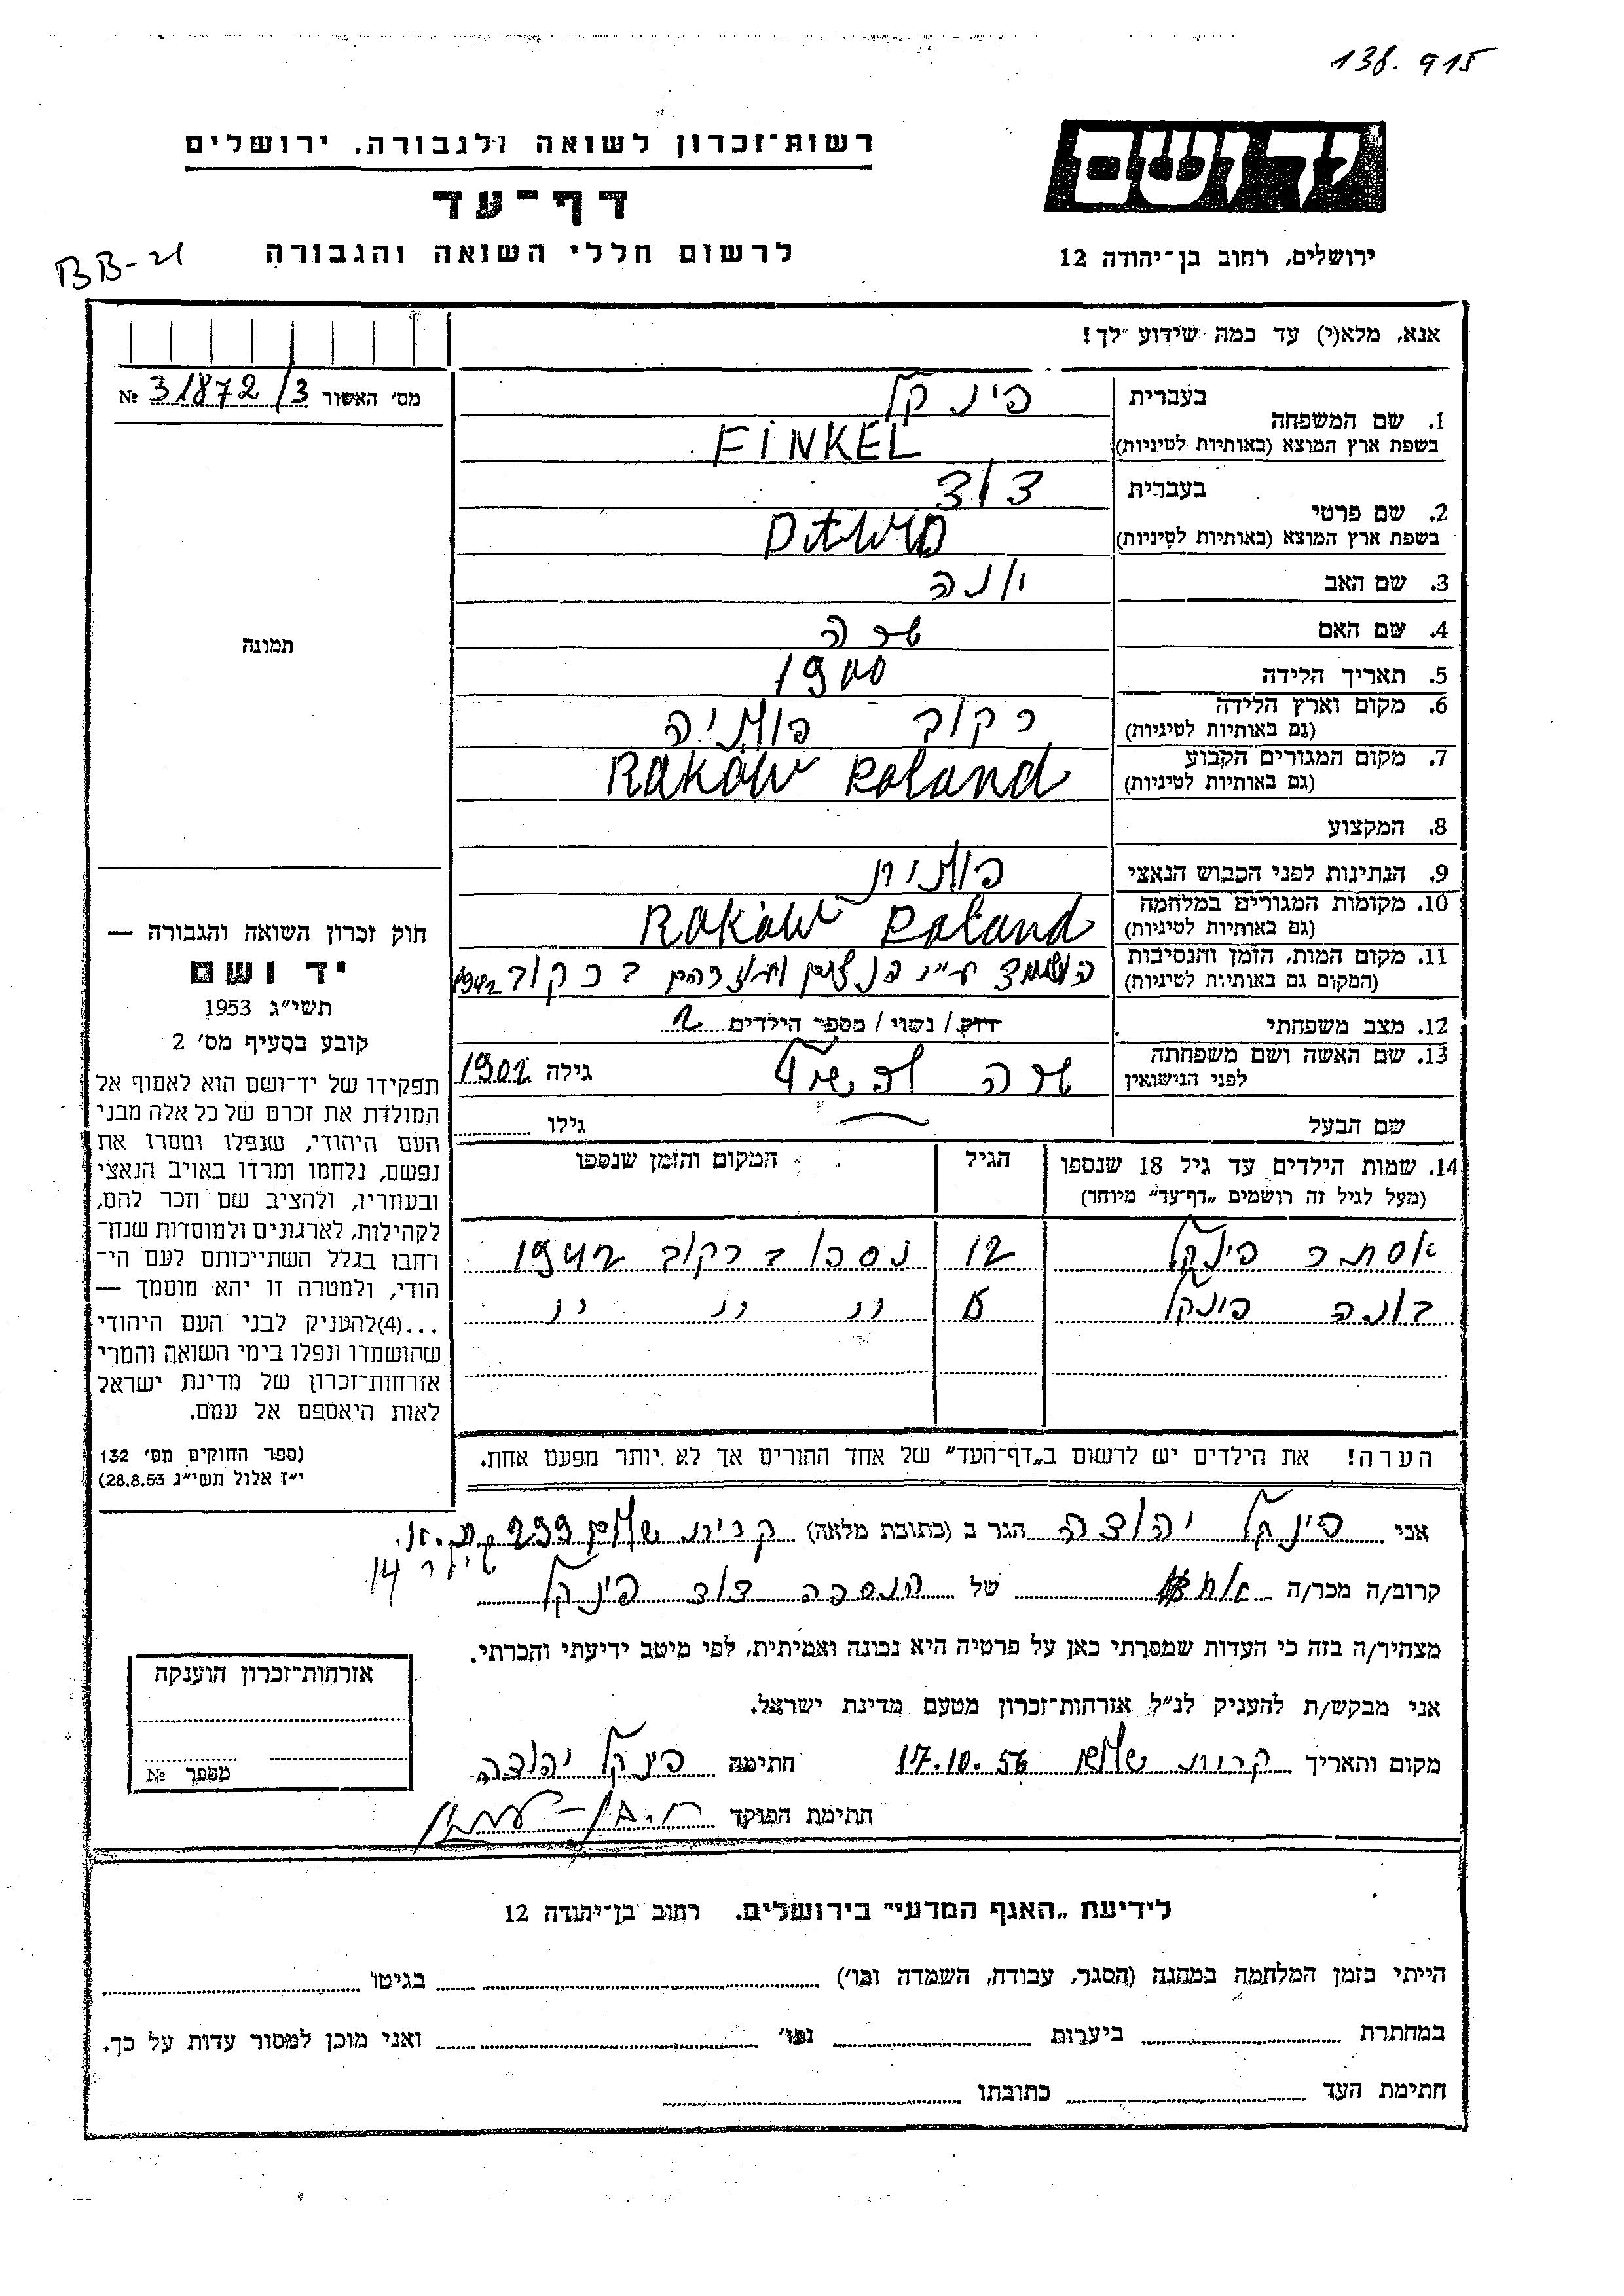 138.915
יד ושם
רשות־זכרון לשואה ולגבורה, ירושלים
דף־עד
לרשום חללי השואה והגבורה
ירושלים, רחוב בן־יהודה 12
BB-21
אנא, מלא(י) עד כמה שידוע לך!
מס' האשור № 31872/3
1. שם המשפחה
בעברית פינקל
בשפת ארץ המוצא (באותיות לטיניות) FINKEL
2. שם פרטי
בעברית דוד
בשפת ארץ המוצא (באותיות לטיניות) DAWID
3. שם האב יונה
4. שם האם שרה
5. תאריך הלידה 1900
6. מקום וארץ הלידה רקוב פולניה
(גם באותיות לטיניות)
7. מקום המגורים הקבוע Raków Poland
(גם באותיות לטיניות)
8. המקצוע
9. הנתינות לפני הכבוש הנאצי פולנית
10. מקומות המגורים במלחמה Raków Poland
(גם באותיות לטיניות)
11. מקום המות, הזמן והנסיבות הושמד ע״י הנאצים ועוזריהם ברקוב 1942
(המקום גם באותיות לטיניות)
12. מצב משפחתי רווק / נשוי / מספר הילדים 2
13. שם האשה ושם משפחתה שרה גילה 1902
לפני הנישואין
שם הבעל גילו
14. שמות הילדים עד גיל 18 שנספו הגיל המקום והזמן שנספו
(מעל לגיל זה רושמים „דף־עד״ מיוחד)
אסתר פינקל 12 נספו ברקוב 1942
פינקל 〃 〃 〃
הערה! את הילדים יש לרשום ב„דף־העד״ של אחד ההורים אך לא יותר מפעם אחת.
תמונה
חוק זכרון השואה והגבורה —
יד ושם
תשי״ג 1953
קובע בסעיף מס' 2
תפקידו של יד־ושם הוא לאסוף אל
המולדת את זכרם של כל אלה מבני
העם היהודי, שנפלו ומסרו את
נפשם, נלחמו ומרדו באויב הנאצי
ובעוזריו, ולהציב שם וזכר להם,
לקהילות, לארגונים ולמוסדות שנח־
רחבו בגלל השתייכותם לעם הי־
הודי, ולמטרה זו יהא מוסמך —
...(4)להעניק לבני העם היהודי
שהושמדו ונפלו בימי השואה והמרי
אזרחות־זכרון של מדינת ישראל
לאות היאספם אל עמם.
(ספר החוקים מס' 132
י״ז אלול תשי״ג 28.8.53)
אני פינקל יהודה הגר ב (כתובת מלאה) קרית שלום 233 ת.א.
14
קרוב/ה מכר/ה אח של הנספה דוד פינקל
מצהיר/ה בזה כי העדות שמסרתי כאן על פרטיה היא נכונה ואמיתית, לפי מיטב ידיעתי והכרתי.
אני מבקש/ת להעניק לנ״ל אזרחות־זכרון מטעם מדינת ישראל.
מקום ותאריך קרית שלום 17.10.56 חתימה פינקל יהודה
חתימת הפוקד
אזרחות־זכרון הוענקה
מספר №
לידיעת „האגף המדעי״ בירושלים. רחוב בן־יהודה 12
הייתי בזמן המלחמה במחנה (הסגר, עבודה, השמדה וכו') בגיטו
במחתרת ביערות וכו' ואני מוכן למסור עדות על כך.
חתימת העד כתובתו